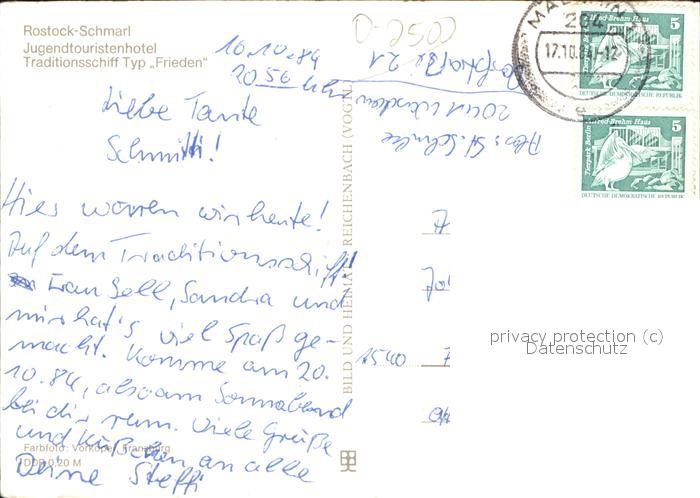 Rostock-Schmarl
Jugendtouristenhotel
Traditionsschiff Typ „Frieden"
10.10.84
20 56 Uhr
Liebe Tante
Schmitti!
Hier waren wir heute!
Auf dem Traditionsschiff!
Frau Sell, Sandra und
mir hat's viel Spaß ge-
macht. Komme am 20.
10.84, also am Sonnabend
bei dir rum. Viele Grüße
und Küßchen an alle
Deine Steffi
Farbfoto: Vorköper, Franzburg
DDR 0,20 M
BILD UND HEIMAT REICHENBACH (VOGTL
D-2500
Abs: St. Schulze
204
21
MALCHIN
204
17.10.84-12
Alfred-Brehm Haus
5
DEUTSCHE DEMOKRATISCHE REPUBLIK
Tierpark Berlin
Alfred-Brehm Haus
5
DEUTSCHE DEMOKRATISCHE REPUBLIK
1540
privacy protection (c)
Datenschutz